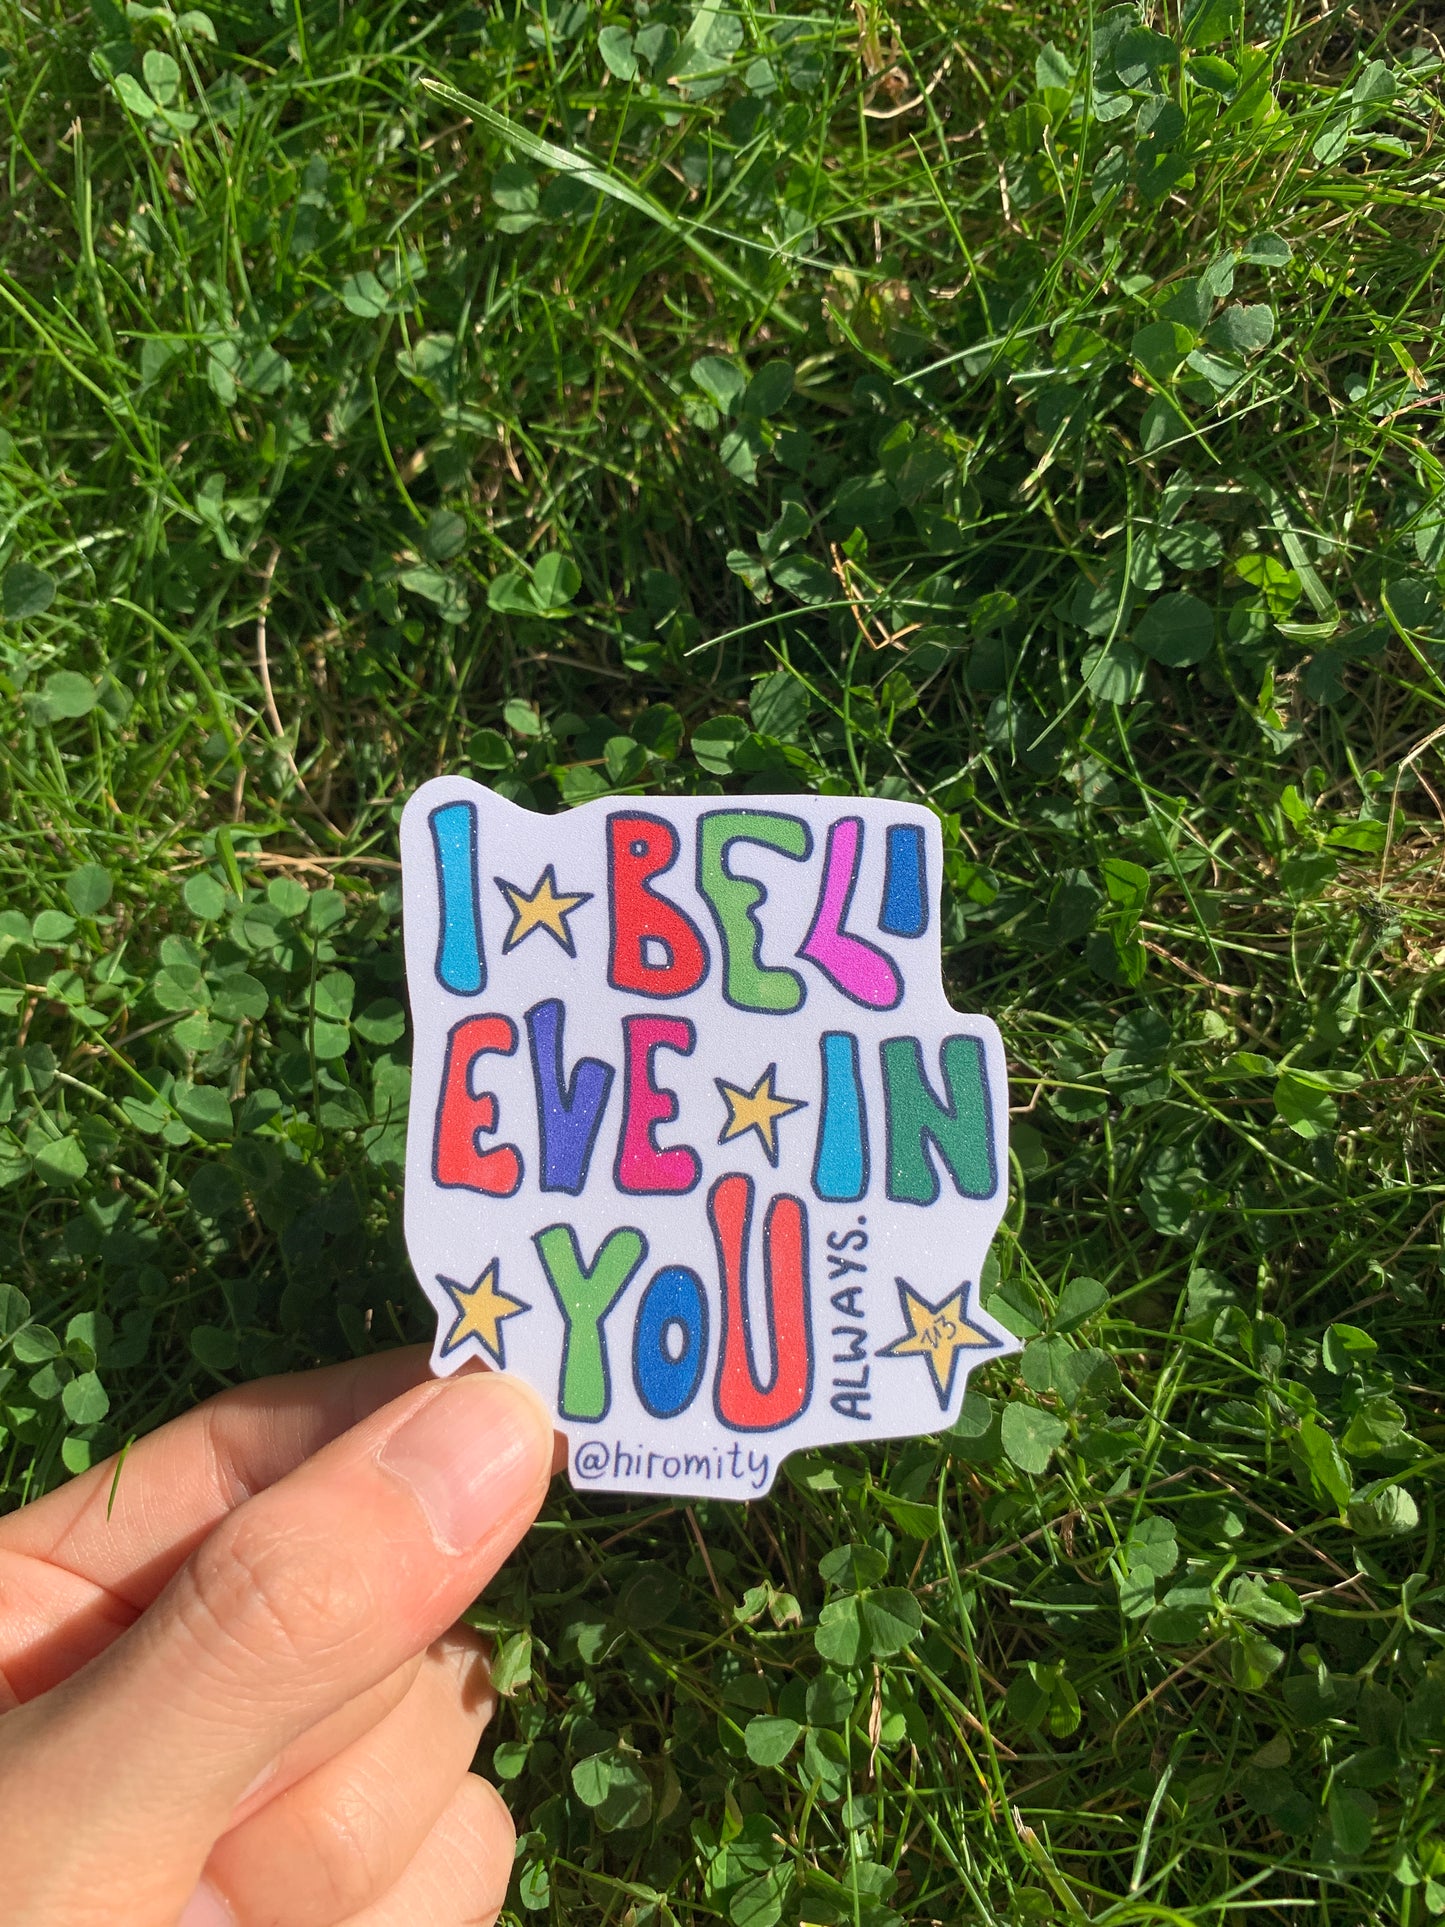 I BELI
EVE IN
YOU
ALWAYS.
213
@hiromity